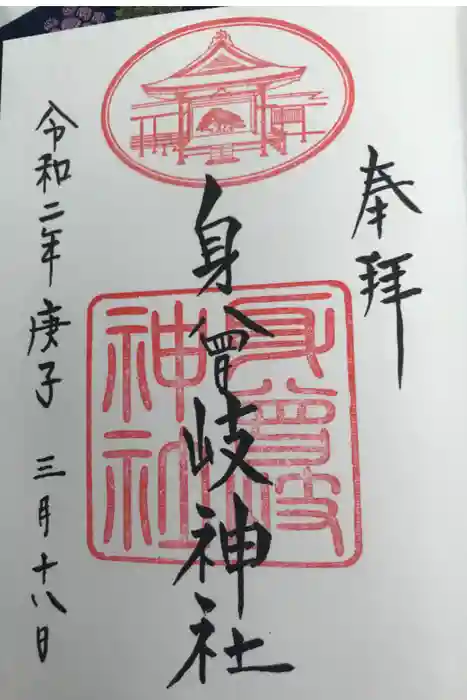 奉拝
身曾岐神社
身曾岐神社
令和二年 庚子 三月十八日